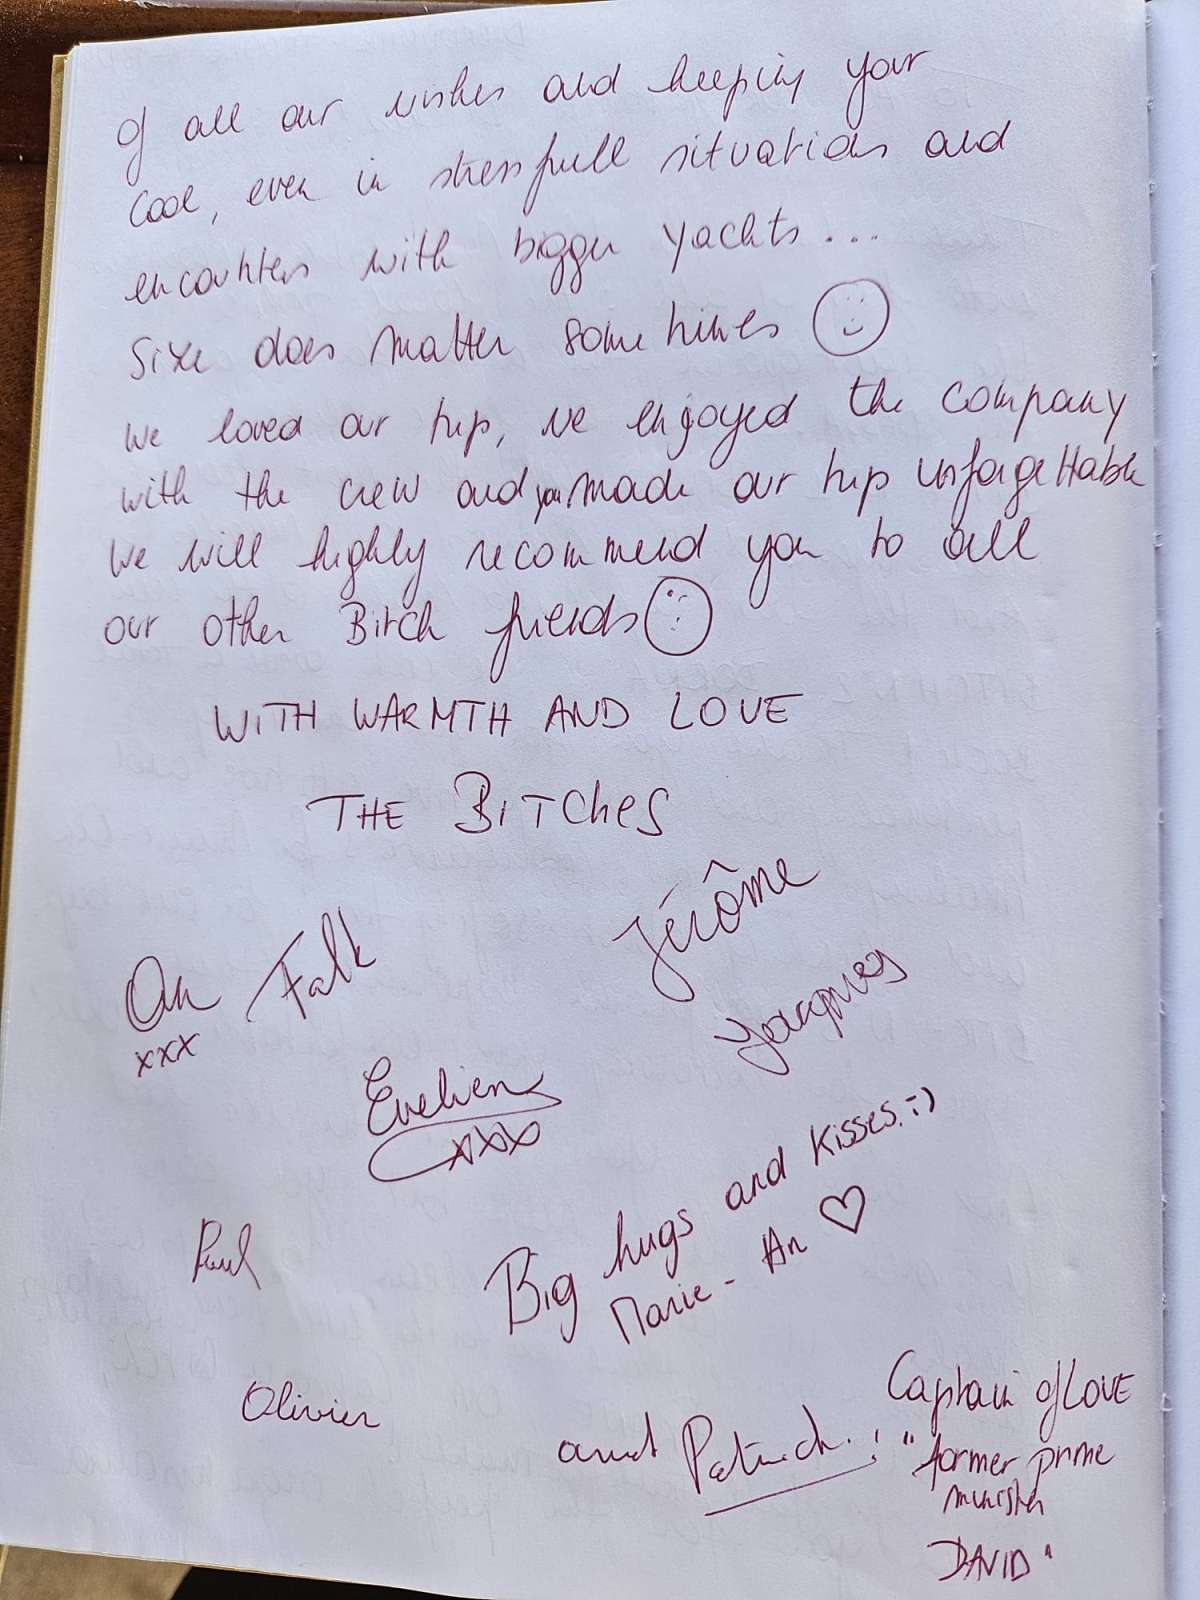 of all our wishes and keeping your
cool, even in stressfull situations and
encounters with bigger yachts...
Size does matter sometimes
We loved our trip, we enjoyed the company
with the crew and you made our trip unforgettable
We will highly recommend you to all
our other Bitch friends
WITH WARMTH AND LOVE
THE BITCHES
Jérôme
An Falk
xxx
Jacques
Evelien
xxx
Big hugs and kisses :-)
Marie-An ♡
Paul
Olivier
and Patrick !
Captain of LOVE
"former prime
minister
DAVID"